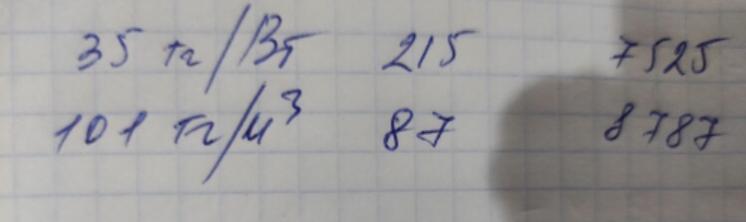 35 тг/Вт 215 7525
101 тг/м³ 87 8787